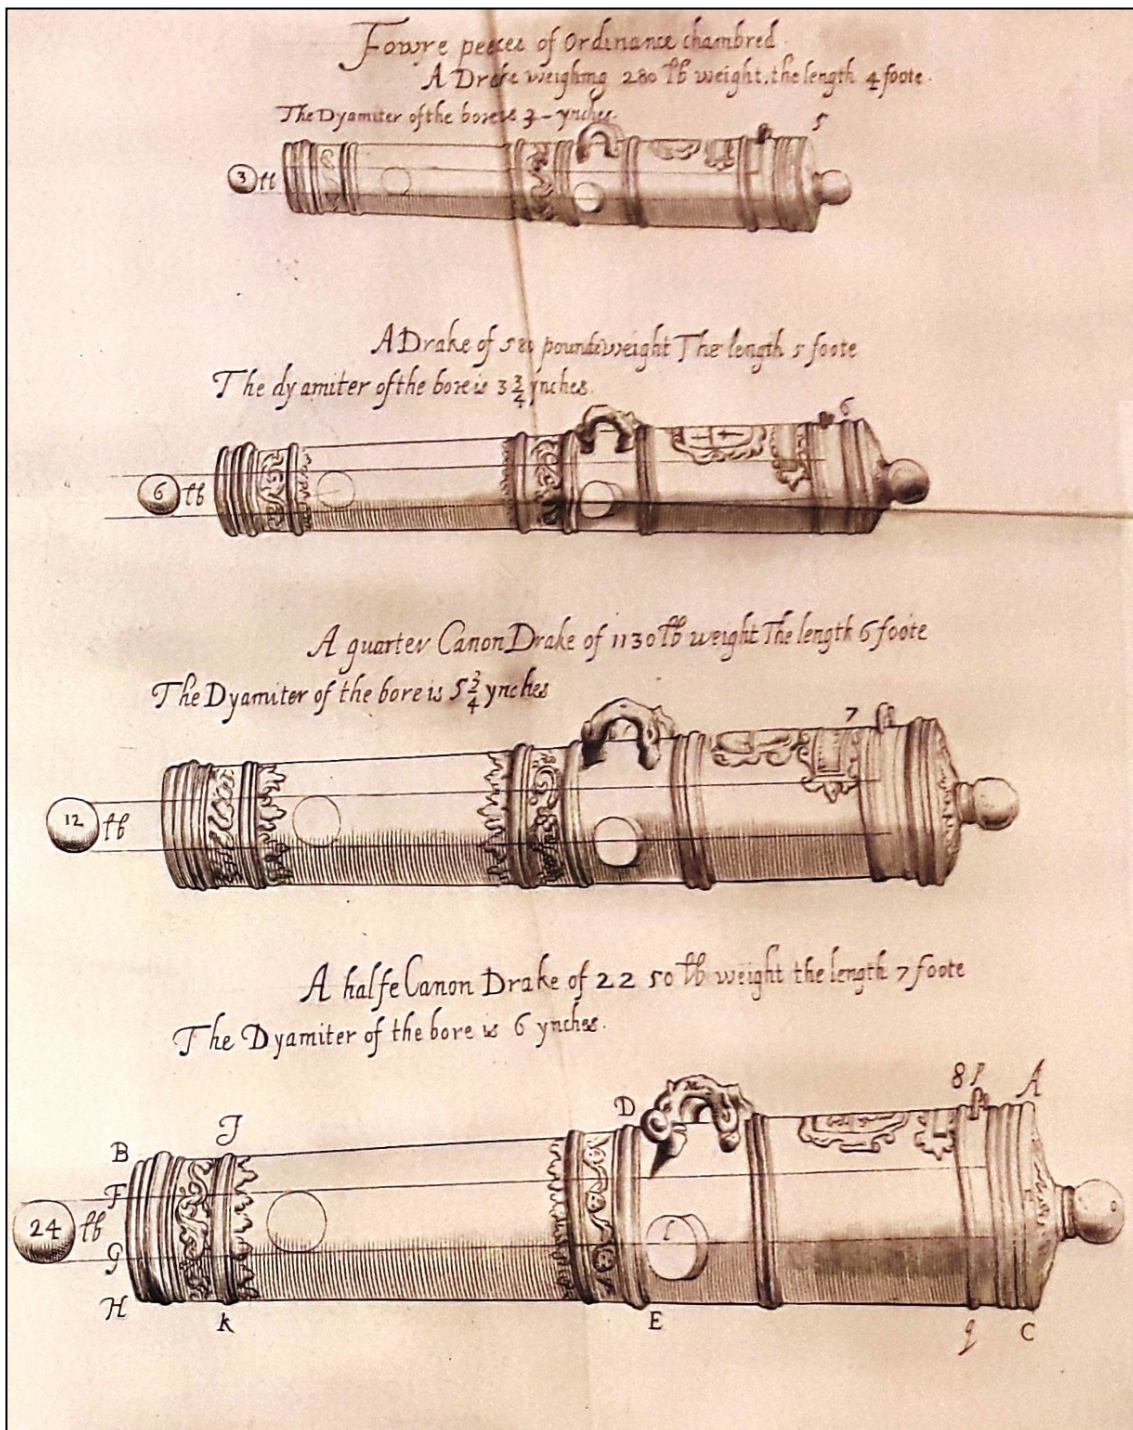 Fowre peeces of Ordinance chambred.
A Drake weighing 280 lb weight. the length 4 foote.
The Dyamiter of the bore is 3 - ynches.
5
3 lb
A Drake of 580 pounde weight The length 5 foote
The dyamiter of the bore is 3 3/4 ynches.
6
6 lb
A quarter Canon Drake of 1130 lb weight The length 6 foote
The Dyamiter of the bore is 5 3/4 ynches
7
12 lb
A halfe Canon Drake of 2250 lb weight the length 7 foote
The Dyamiter of the bore is 6 ynches.
8 P A
D
J
B
F
24 lb
G
H
k
E
q C